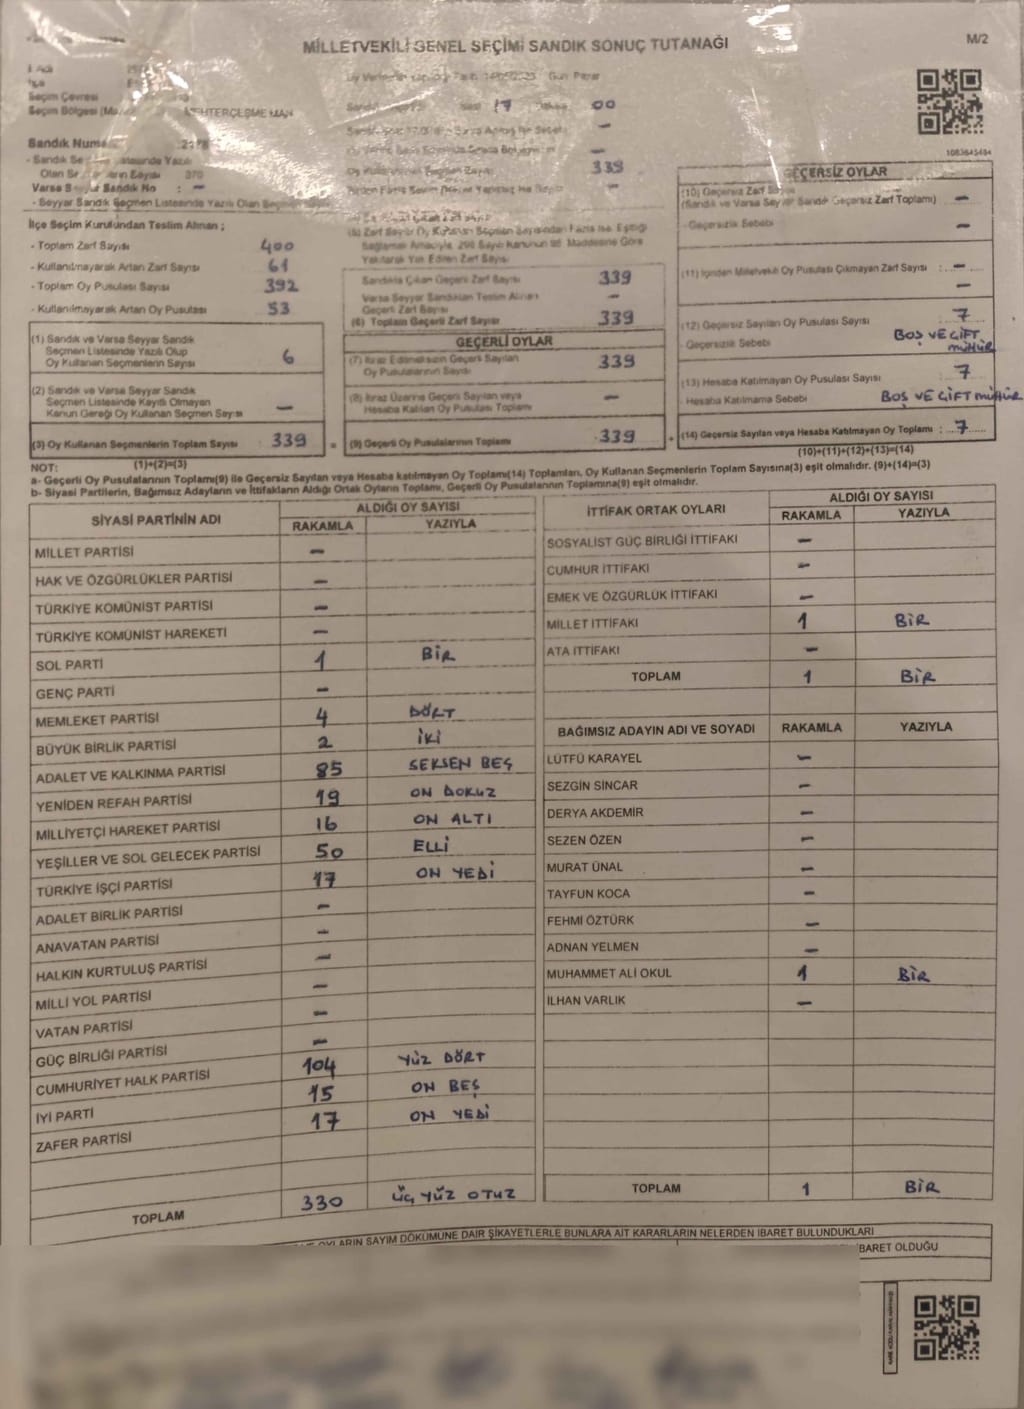 MİLLETVEKİLİ GENEL SEÇİMİ SANDIK SONUÇ TUTANAĞI
M/2
Seçim Çevresi
Seçim Bölgesi
17
00
Sandık
339
1083645484
- Toplam Zarf Sayısı 400
- Kullanılmayarak Artan Zarf Sayısı 61
- Toplam Oy Pusulası Sayısı 392
- Kullanılmayarak Artan Oy Pusulası 53
İlçe Seçim Kurulundan Teslim Alınan ;
(1) Sandık ve Varsa Seyyar Sandık
Seçmen Listesinde Yazılı Olup
Oy Kullanan Seçmenlerin Sayısı 6
(2) Sandık ve Varsa Seyyar Sandık
Seçmen Listesinde Kayıtlı Olmayan
Kanun Gereği Oy Kullanan Seçmen Sayısı –
(3) Oy Kullanan Seçmenlerin Toplam Sayısı 339 =
(1)+(2)=(3)
Sandıkta Çıkan Geçerli Zarf Sayısı 339
Varsa Seyyar Sandıktan Teslim Alınan
Geçerli Zarf Sayısı –
(6) Toplam Geçerli Zarf Sayısı 339
GEÇERLİ OYLAR
(7) İtiraz Edilmeksizin Geçerli Sayılan
Oy Pusulalarının Sayısı 339
(8) İtiraz Üzerine Geçerli Sayılan veya
Hesaba Katılan Oy Pusulası Toplamı –
(9) Geçerli Oy Pusulalarının Toplamı 339 +
GEÇERSİZ OYLAR
(10) Geçersiz Zarf Sayısı
(Sandık ve Varsa Seyyar Sandık Geçersiz Zarf Toplamı) –
- Geçersizlik Sebebi –
(11) İçinden Milletvekili Oy Pusulası Çıkmayan Zarf Sayısı : –
–
(12) Geçersiz Sayılan Oy Pusulası Sayısı 7
- Geçersizlik Sebebi BOŞ VE ÇİFT MÜHÜR
(13) Hesaba Katılmayan Oy Pusulası Sayısı 7
- Hesaba Katılmama Sebebi BOŞ VE ÇİFT MÜHÜR
(14) Geçersiz Sayılan veya Hesaba Katılmayan Oy Toplamı : 7
(10)+(11)+(12)+(13)=(14)
NOT:
a- Geçerli Oy Pusulalarının Toplamı(9) ile Geçersiz Sayılan veya Hesaba katılmayan Oy Toplamı(14) Toplamları, Oy Kullanan Seçmenlerin Toplam Sayısına(3) eşit olmalıdır. (9)+(14)=(3)
b- Siyasi Partilerin, Bağımsız Adayların ve İttifakların Aldığı Ortak Oyların Toplamı, Geçerli Oy Pusulalarının Toplamına(9) eşit olmalıdır.
SİYASİ PARTİNİN ADI ALDIĞI OY SAYISI
RAKAMLA YAZIYLA
MİLLET PARTİSİ –
HAK VE ÖZGÜRLÜKLER PARTİSİ –
TÜRKİYE KOMÜNİST PARTİSİ –
TÜRKİYE KOMÜNİST HAREKETİ –
SOL PARTİ 1 BİR
GENÇ PARTİ –
MEMLEKET PARTİSİ 4 DÖRT
BÜYÜK BİRLİK PARTİSİ 2 İKİ
ADALET VE KALKINMA PARTİSİ 85 SEKSEN BEŞ
YENİDEN REFAH PARTİSİ 19 ON DOKUZ
MİLLİYETÇİ HAREKET PARTİSİ 16 ON ALTI
YEŞİLLER VE SOL GELECEK PARTİSİ 50 ELLİ
TÜRKİYE İŞÇİ PARTİSİ 17 ON YEDİ
ADALET BİRLİK PARTİSİ –
ANAVATAN PARTİSİ –
HALKIN KURTULUŞ PARTİSİ –
MİLLİ YOL PARTİSİ –
VATAN PARTİSİ –
GÜÇ BİRLİĞİ PARTİSİ –
CUMHURİYET HALK PARTİSİ 104 YÜZ DÖRT
İYİ PARTİ 15 ON BEŞ
ZAFER PARTİSİ 17 ON YEDİ
TOPLAM 330 ÜÇ YÜZ OTUZ
İTTİFAK ORTAK OYLARI ALDIĞI OY SAYISI
RAKAMLA YAZIYLA
SOSYALİST GÜÇ BİRLİĞİ İTTİFAKI –
CUMHUR İTTİFAKI –
EMEK VE ÖZGÜRLÜK İTTİFAKI –
MİLLET İTTİFAKI 1 BİR
ATA İTTİFAKI –
TOPLAM 1 BİR
BAĞIMSIZ ADAYIN ADI VE SOYADI RAKAMLA YAZIYLA
LÜTFÜ KARAYEL –
SEZGİN SİNCAR –
DERYA AKDEMİR –
SEZEN ÖZEN –
MURAT ÜNAL –
TAYFUN KOCA –
FEHMİ ÖZTÜRK –
ADNAN YELMEN –
MUHAMMET ALİ OKUL 1 BİR
İLHAN VARLIK –
TOPLAM 1 BİR
OYLARIN SAYIM DÖKÜMÜNE DAİR ŞİKAYETLERLE BUNLARA AİT KARARLARIN NELERDEN İBARET BULUNDUKLARI
İBARET OLDUĞU